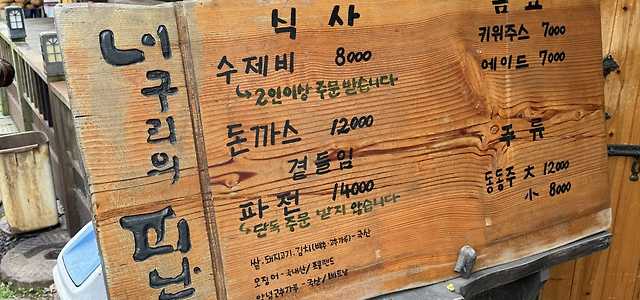 너구리의
피난
식 사
수제비 8000
↳ 2인이상 주문 받습니다
돈까스 12000
곁들임
파전 14000
↳ 단독 주문 받지 않습니다
쌀·돼지고기·김치(배추·고추가루) - 국산
오징어 - 국내산/포클랜드
양념고추가루 - 국산/베트남
음료
키위주스 7000
에이드 7000
주류
동동주 大 12000
小 8000